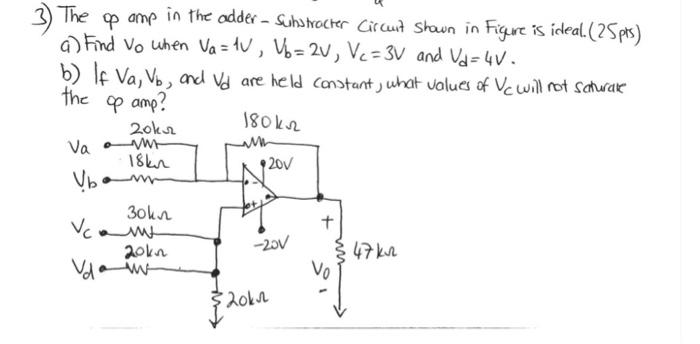 3) The op amp in the adder - Substracter Circuit shown in Figure is ideal. (25pts)
a) Find Vo when Va = 1V, Vb = 2V, Vc = 3V and Vd = 4V.
b) If Va, Vb, and Vd are held constant, what values of Vc will not saturate
the op amp?
20kΩ
180kΩ
Va
18kΩ
20V
Vb
-
30kΩ
+
Vc
+
20kΩ
-20V
47kΩ
Vd
Vo
-
20kΩ